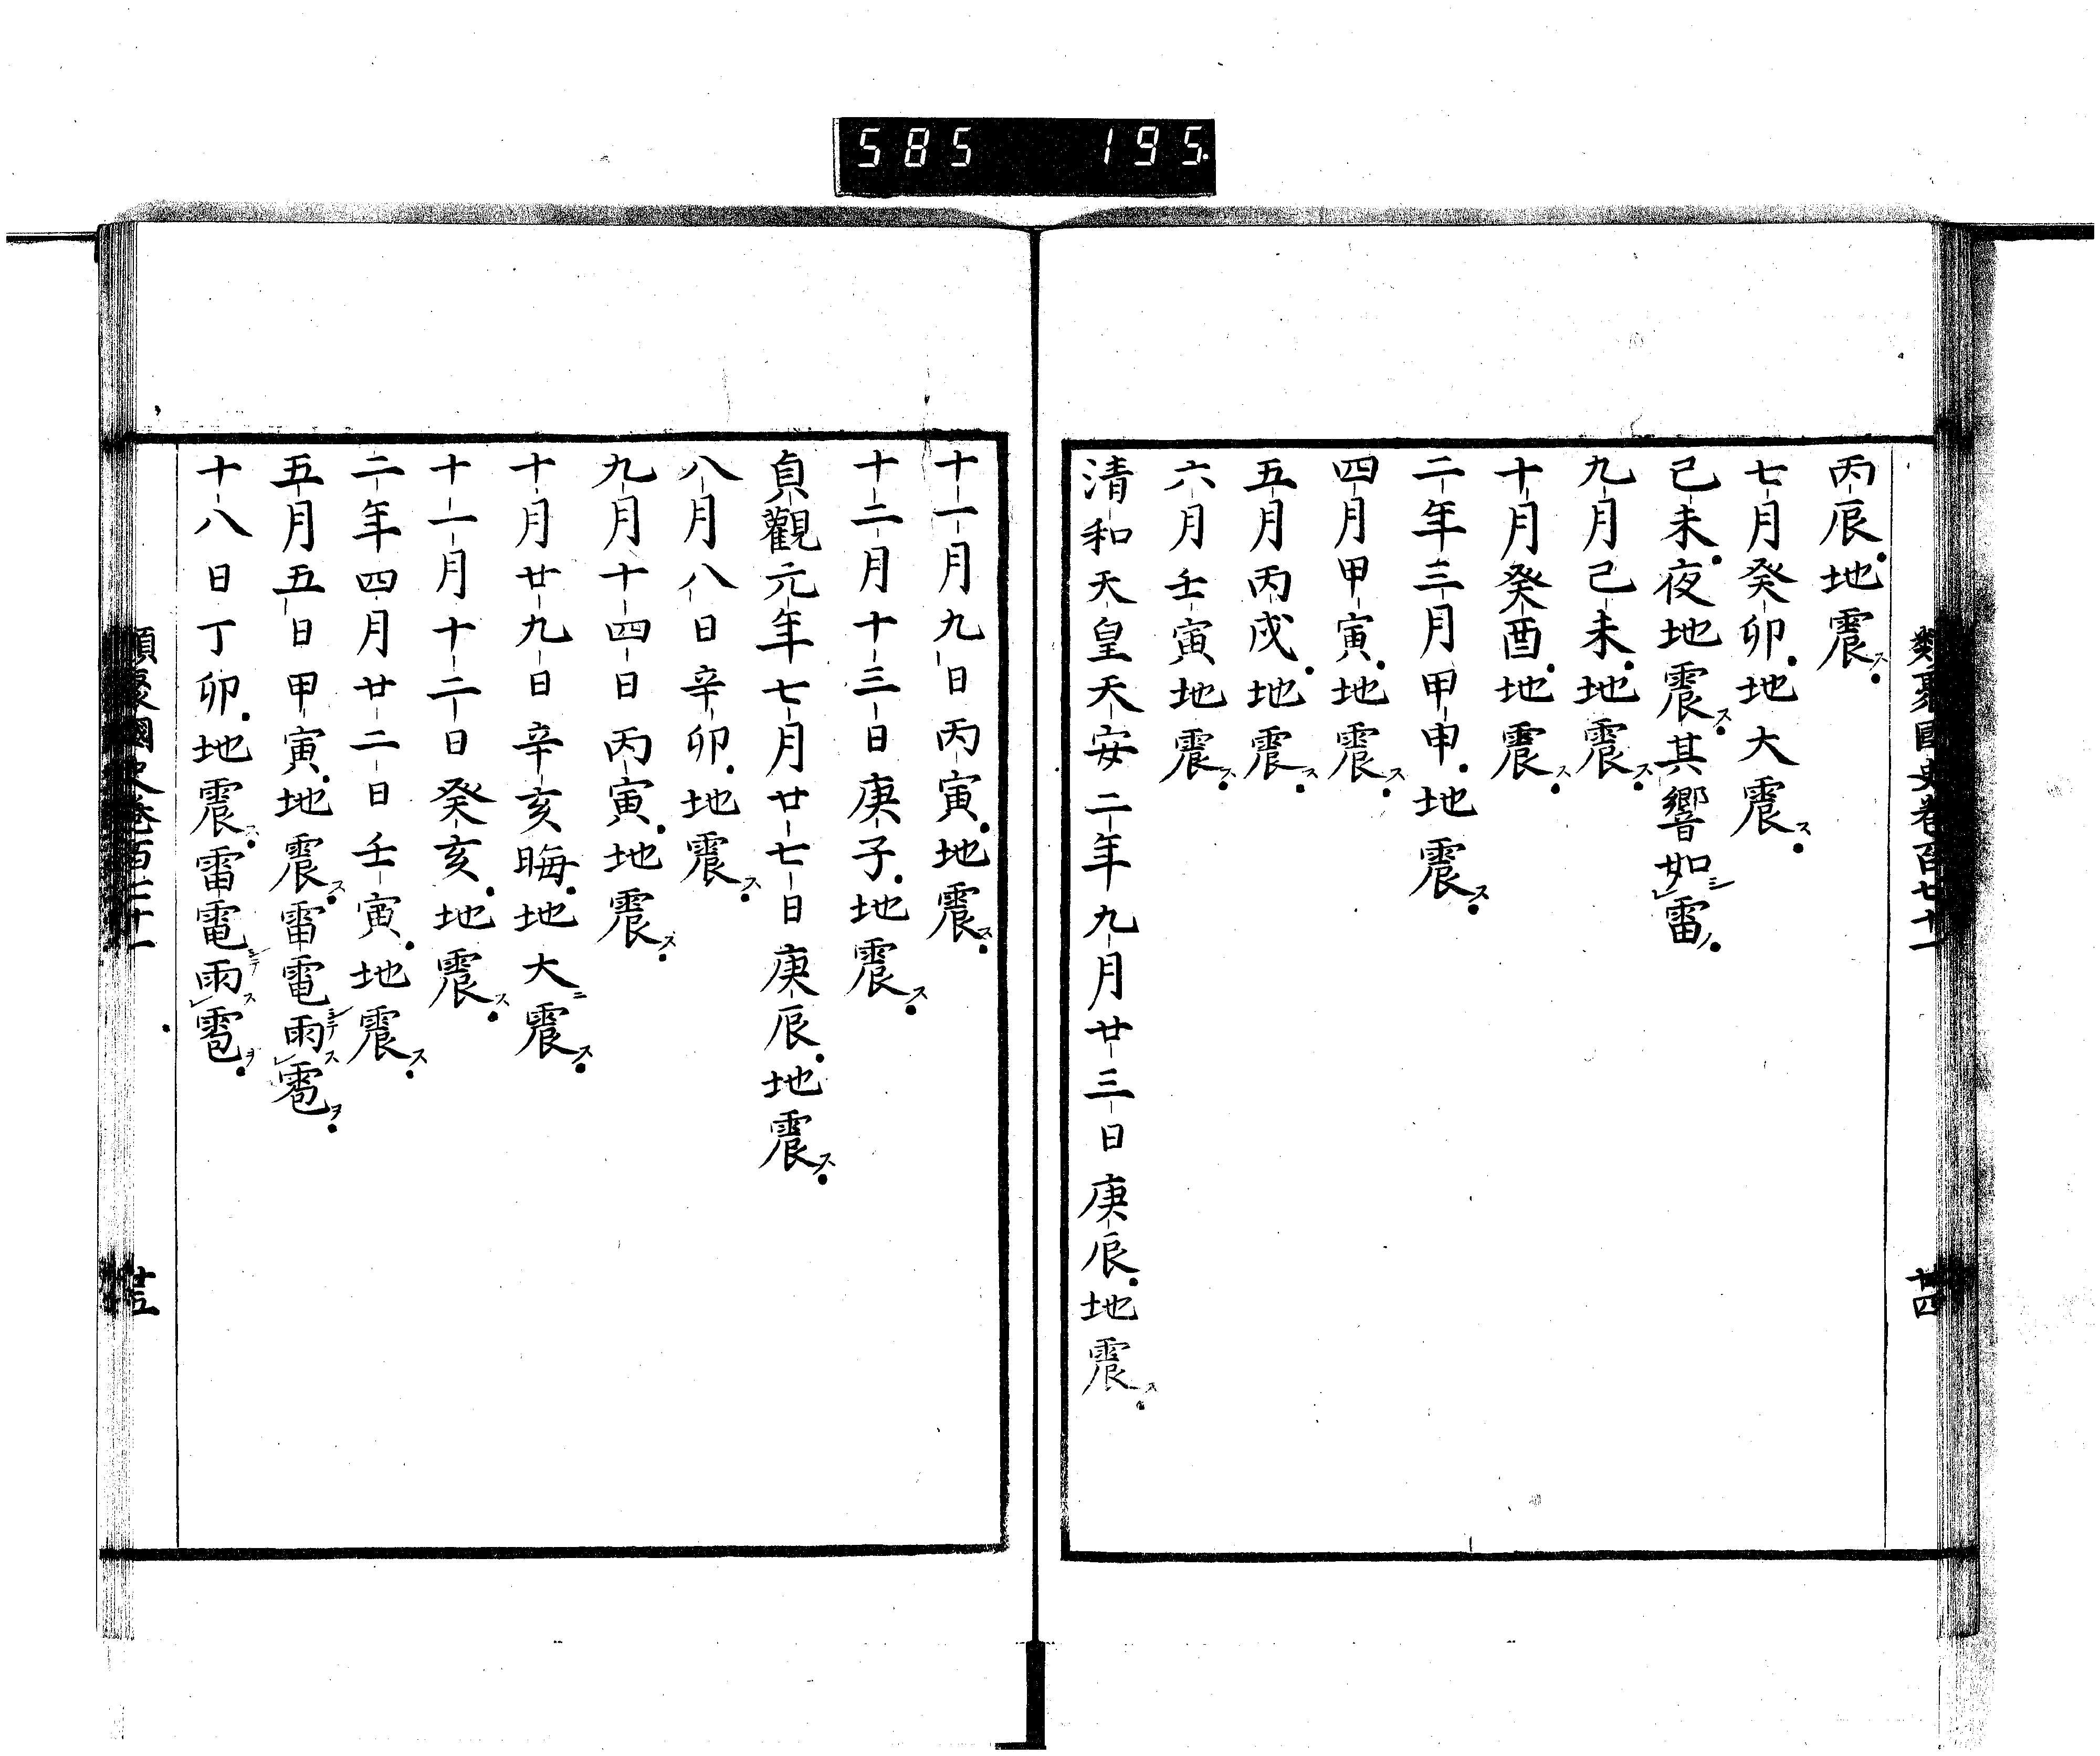 585 195
類聚國史卷百七十一
廿四
丙辰地震ス
七月癸卯地大震ス
己未夜地震ス其響如シレ雷ノ
九月己未地震ス
十月癸酉地震ス
二年三月甲申地震ス
四月甲寅地震ス
五月丙戌地震ス
六月壬寅地震ス
清和天皇天安二年九月廿三日庚辰地震ス
十一月九日丙寅地震ス
十二月十三日庚子地震ス
貞觀元年七月廿七日庚辰地震ス
八月八日辛卯地震ス
九月十四日丙寅地震ス
十月廿九日辛亥晦地大ニ震ス
十一月十二日癸亥地震ス
二年四月廿二日壬寅地震ス
五月五日甲寅地震ス雷電シテ雨スレ雹ヲ
十八日丁卯地震ス雷電シテ雨スレ雹ヲ
類聚國史卷百七十一
廿五